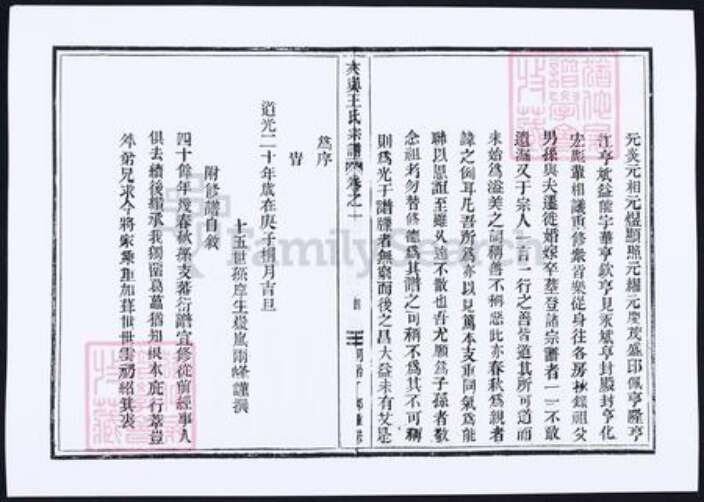 元炎元相元煜顯照元耀元慶茂盛印佩亨隆亨
江亨斌益能宇華亨欽亨見永斌亨封殿封亨化
宏彪輩相議重修衆皆樂從身往各房抄錄祖父
男孫與夫遷徙婚嫁卒塟登諸宗譜者一一不敢
遺漏又于宗人一言一行之善皆道其所可道而
未始爲溢美之詞稱善不稱惡此亦春秋爲親者
諱之例耳凡吾所爲亦以見篤本支重同氣爲能
聯以恩誼至雖久遠不散也吾尤願爲子孫者敬
念祖考勿替修德爲其譜之可稱不爲其不可稱
則爲光于譜牒者無窮而後之昌大益未有艾是
夾輿王氏宗譜 卷之一
爲序
旹
道光二十年歲在庚子桐月吉旦
十五世孫庠生嚴嵐雨峰謹撰
附修譜自敘
四十餘年幾春秋孫支蕃衍譜宜修從前經事人
俱去續後纘承我獨留葛藟猶知根本庇行葦豈
外弟兄求今將家乘重加葺世世雲礽紹其裘
FamilySearch